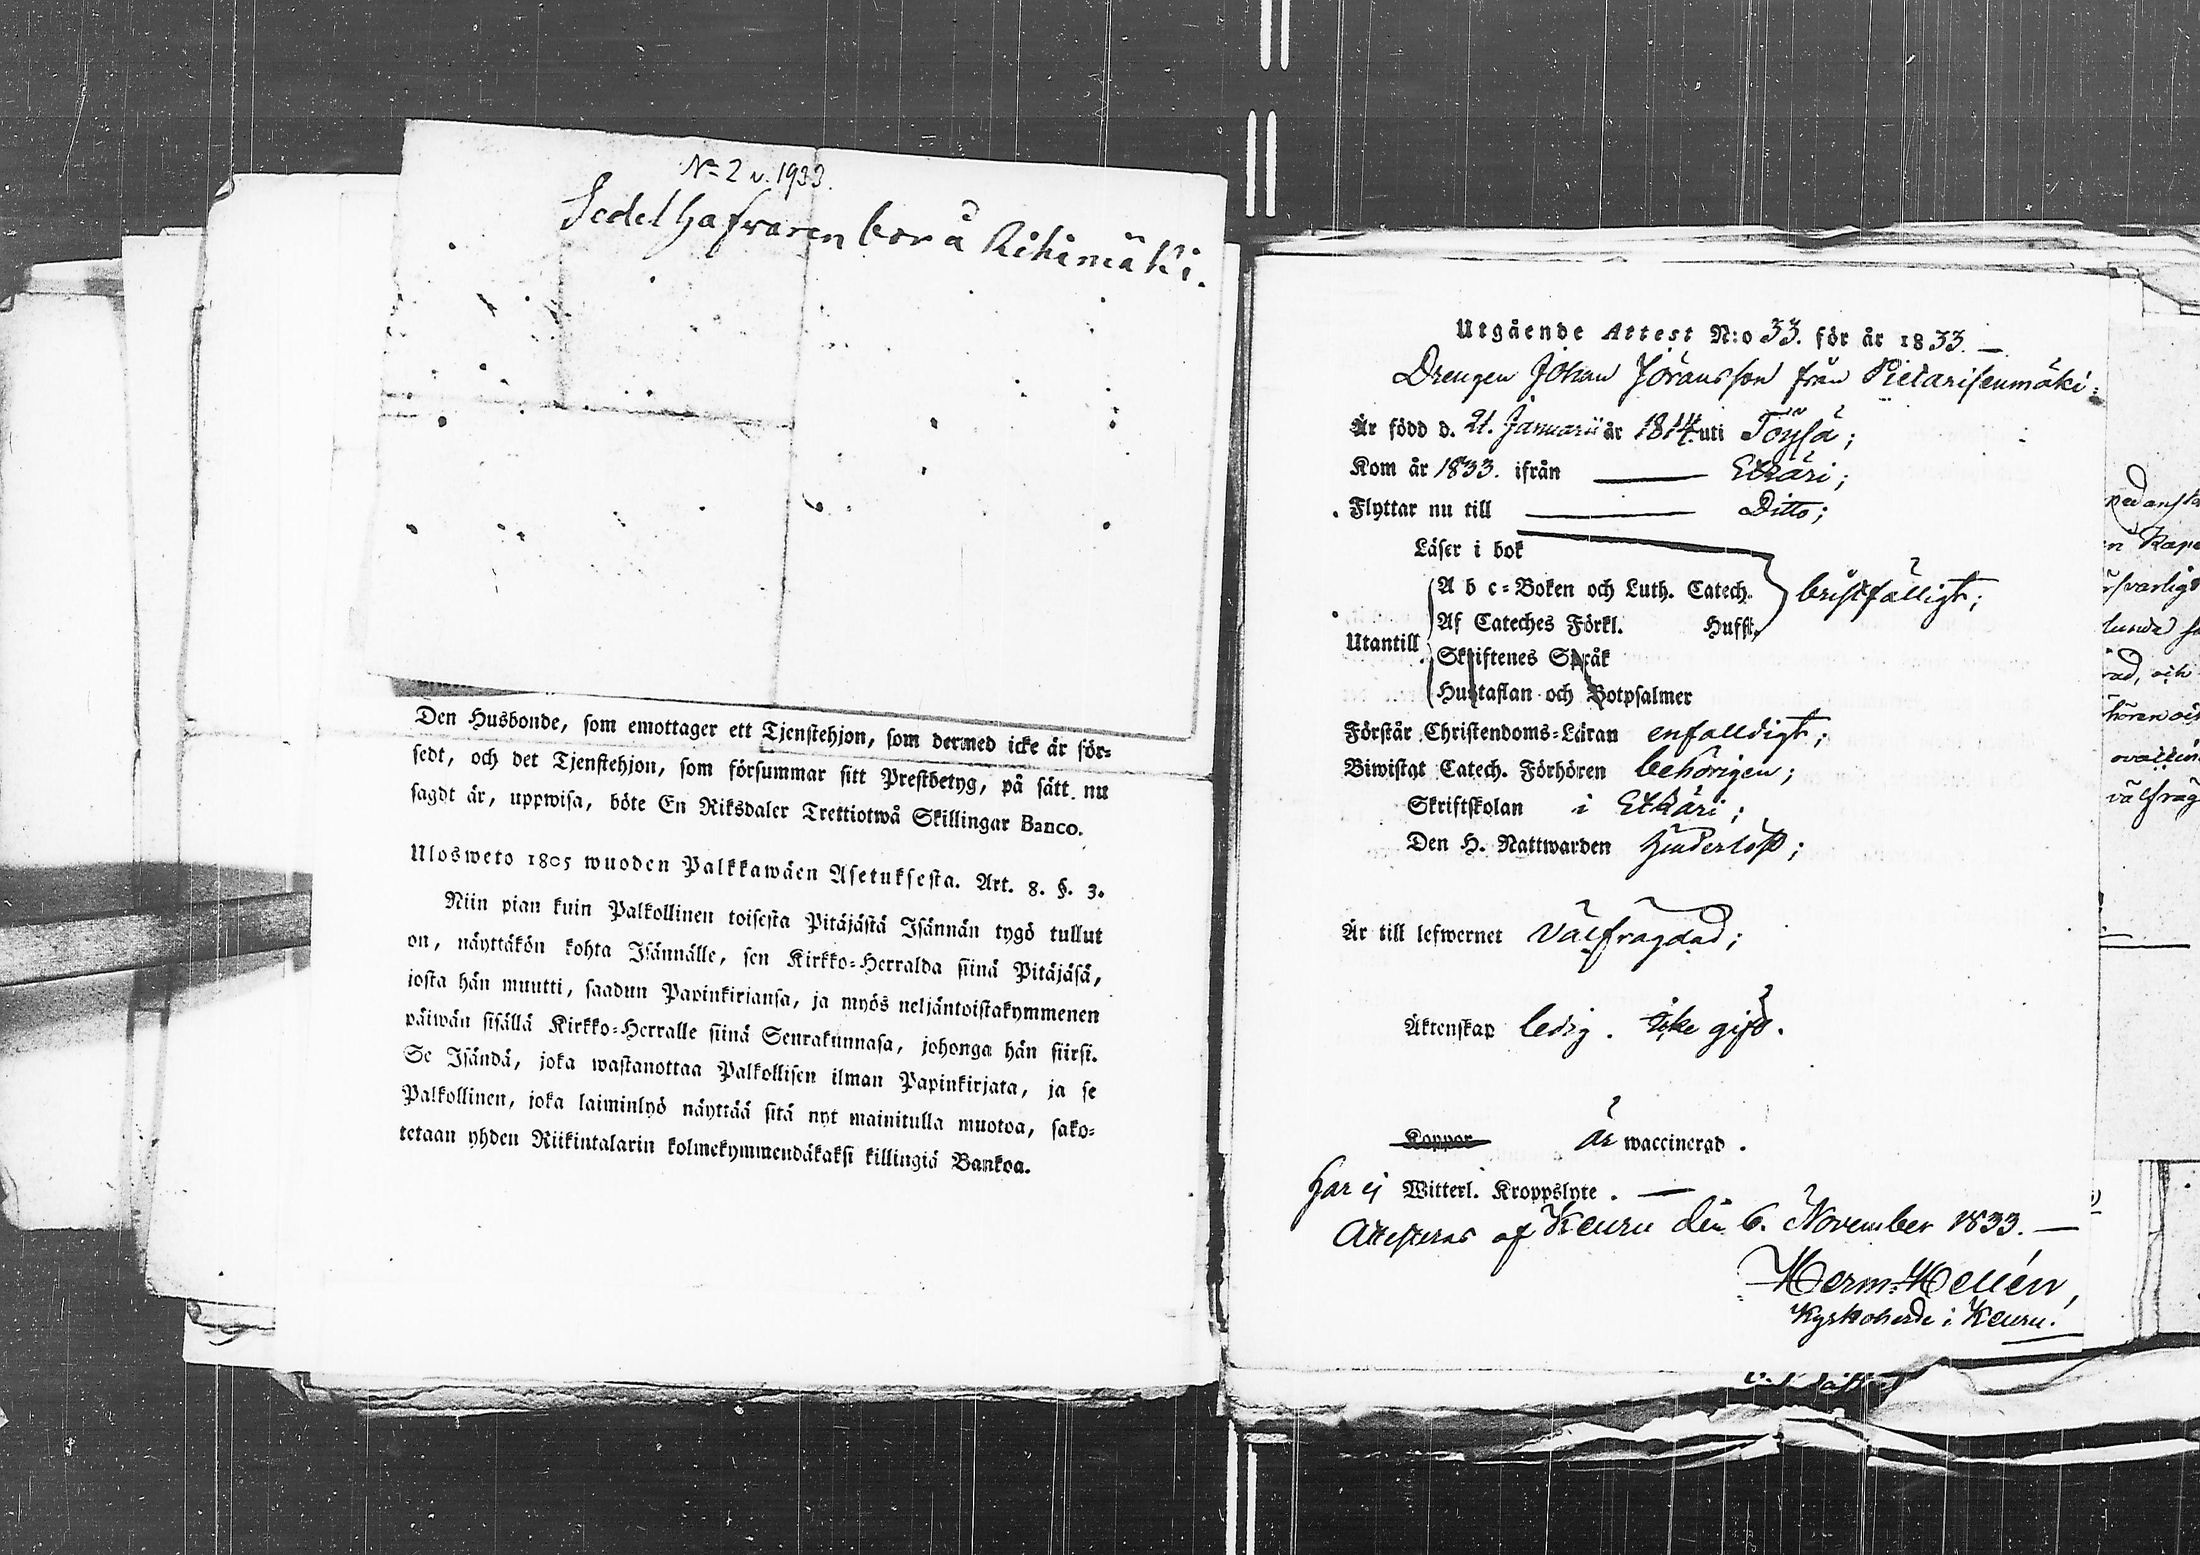 No 2 v. 1933.
Sedelhafvaren bor å Rihimäki.
Den Husbonde, som emottager ett Tjenstehjon, som dermed icke är för-
sedt, och det Tjenstehjon, som försummar sitt Prestbetyg, på sätt nu
sagdt är, uppwisa, böte En Riksdaler Trettiotwå Skillingar Banco.
Ulosweto 1805 wuoden Palkkawäen Asetuksesta. Art. 8. §. 3.
Niin pian kuin Palkollinen toisesta Pitäjästä Isännän tygö tullut
on, näyttäkön kohta Isännälle, sen Kirkko-Herralda siinä Pitäjäsä,
josta hän muutti, saadun Papinkirjansa, ja myös neljäntoistakymmenen
päiwän sisällä Kirkko-Herralle siinä Seurakunnasa, johonga hän siirsi.
Se Isändä, joka wastanottaa Palkollisen ilman Papinkirjata, ja se
Palkollinen, joka laiminlyö näyttää sitä nyt mainitulla muotoa, sako-
tetaan yhden Riikintalarin kolmekymmendäkaksi killingiä Bankoa.
Utgående Attest N:o 33. för år 1833.
Drengen Johan Jöransson från Pietarisenmäki
Är född d. 21. Januarii år 1814. uti Töysä;
Kom år 1833. ifrån Etsäri;
Flyttar nu till Ditto;
Läser i bok
A b c-Boken och Luth. Catech. bristfälligt;
Af Cateches Förkl. Hufst.
Utantill
Skriftenes Språk
Hustaflan och Botpsalmer
Förstår Christendoms-Läran enfalldigt;
Biwistat Catech. Förhören behörigen;
Skriftskolan i Etsäri;
Den H. Nattwarden hinderlöst;
Är till lefwernet välfrägdad;
Äktenskap ledig. icke gift.
Koppor är waccinerad.
har ej Witterl. Kroppslyte.
Attesteras af Keuru den 6. November 1833.
Herm. Hellén,
Kyrkoherde i Keuru.